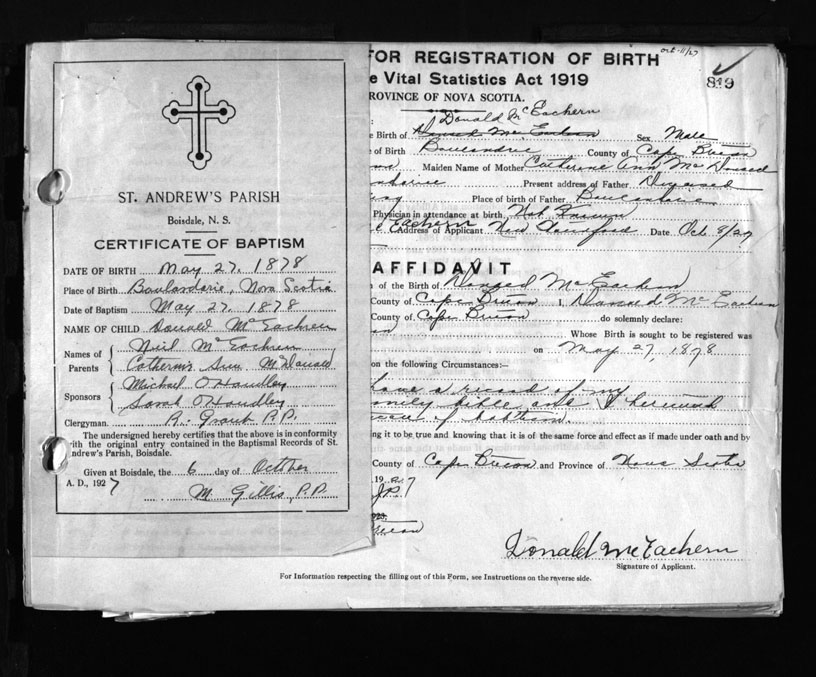 ST. ANDREW'S PARISH
Boisdale, N. S.
CERTIFICATE OF BAPTISM
DATE OF BIRTH May 27, 1878
Place of Birth Boulardarie, Nova Scotia
Date of Baptism May 27, 1878
NAME OF CHILD Donald McEachren
Names of Parents
Neil McEachren
Catherine Ann McDonald
Sponsors
Michael O'Handley
Sarah O'Handley
Clergyman. R. Grant P.P.
The undersigned hereby certifies that the above is in conformity
with the original entry contained in the Baptismal Records of St.
Andrew's Parish, Boisdale.
Given at Boisdale, the 6 day of October
A. D., 1927
M. Gillis, P.P.
Oct-11/27
FOR REGISTRATION OF BIRTH
819
e Vital Statistics Act 1919
PROVINCE OF NOVA SCOTIA.
Donald McEachern
e Birth of Sex Male
of Birth Boulardrie County of Cape Breton
Maiden Name of Mother Catherine Ann McDonald
Present address of Father Deceased
Place of birth of Father
Physician in attendance at birth Not Known
Eachern Address of Applicant New Date Oct 8/27
AFFIDAVIT
of the Birth of Donald McEachern
County of Cape Breton I, Donald McEachern
County of Cape Breton do solemnly declare:
Whose Birth is sought to be registered was
on May 27, 1878
on the following Circumstances:—
have a record of my
family bible and I herewith
of baptism.
ng it to be true and knowing that it is of the same force and effect as if made under oath and by
County of Cape Breton and Province of Nova Scotia
1927
J.P.
Donald McEachern
Signature of Applicant.
For Information respecting the filling out of this Form, see Instructions on the reverse side.